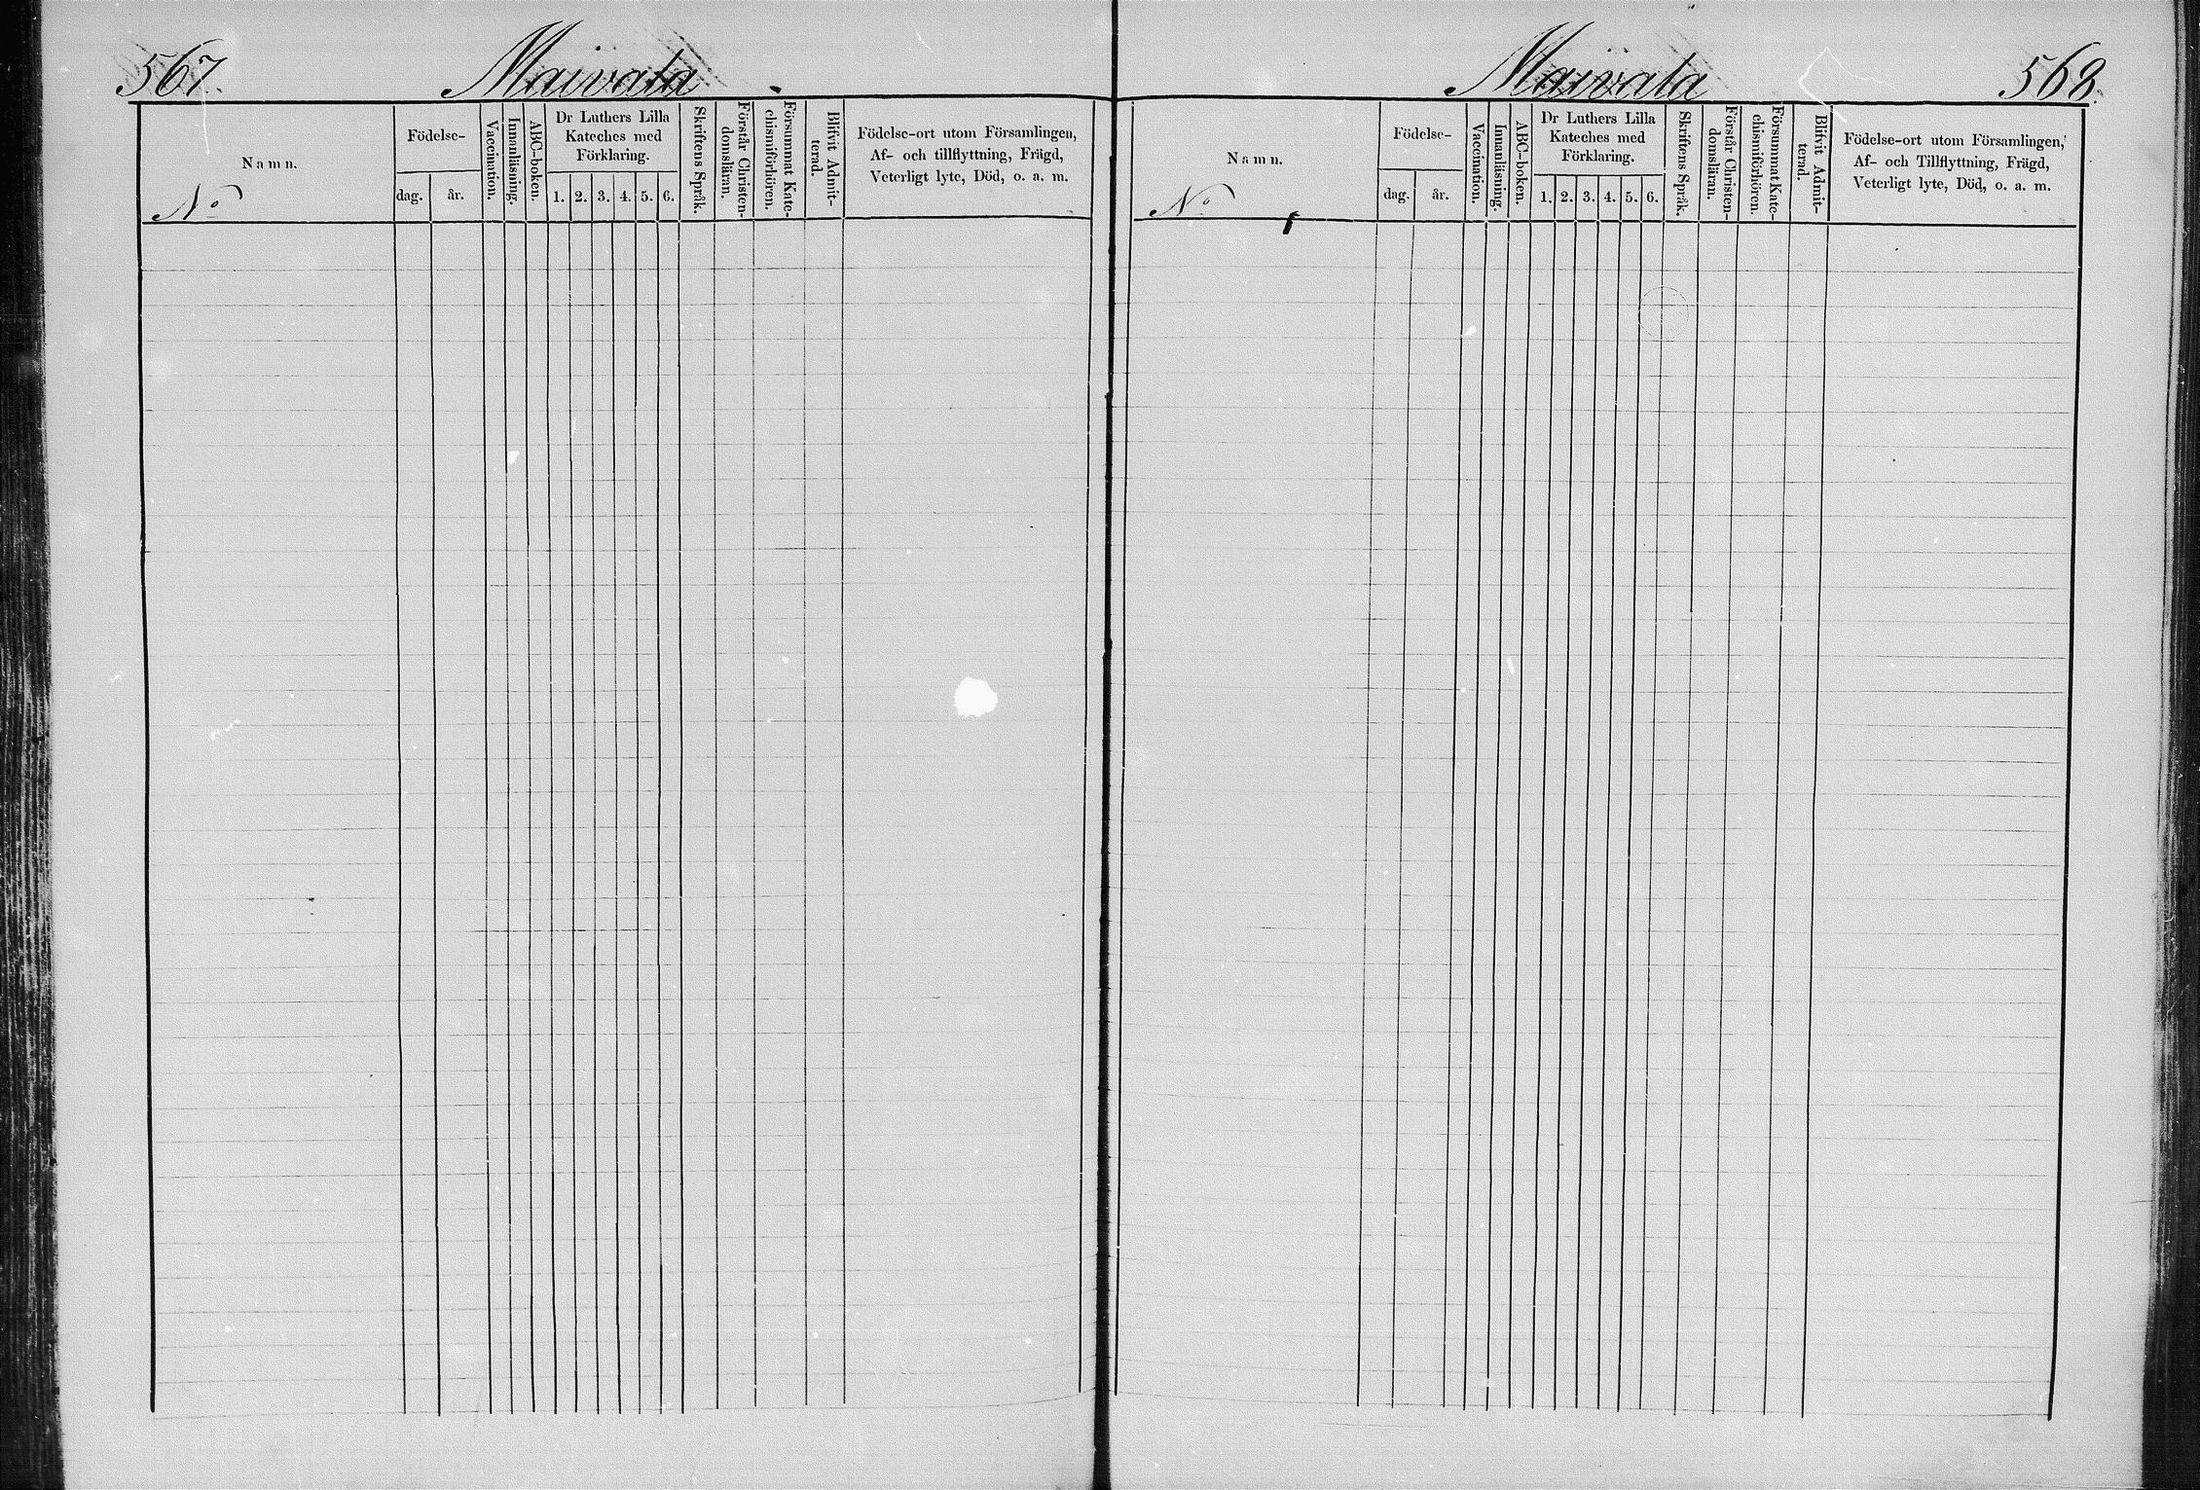 567.
Maivala
Namn.
No
Födelse-
dag.
år.
Vaccination.
Innanläsning.
ABC-boken.
Dr Luthers Lilla
Kateches med
Förklaring.
1. 2. 3. 4. 5. 6.
Skriftens Språk.
Förstår Christen-
domsläran.
Försummat Kate-
chismiförhören.
Blifvit Admit-
terad.
Födelse-ort utom Församlingen,
Af- och tillflyttning, Frägd,
Veterligt lyte, Död, o. a. m.
Maivala
568.
Namn.
No
Födelse-
dag.
år.
Vaccination.
Innanläsning.
ABC-boken.
Dr Luthers Lilla
Kateches med
Förklaring.
1. 2. 3. 4. 5. 6.
Skriftens Språk.
Förstår Christen-
domsläran.
Försummat Kate-
chismiförhören.
Blifvit Admit-
terad.
Födelse-ort utom Församlingen,
Af- och Tillflyttning, Frägd,
Veterligt lyte, Död, o. a. m.